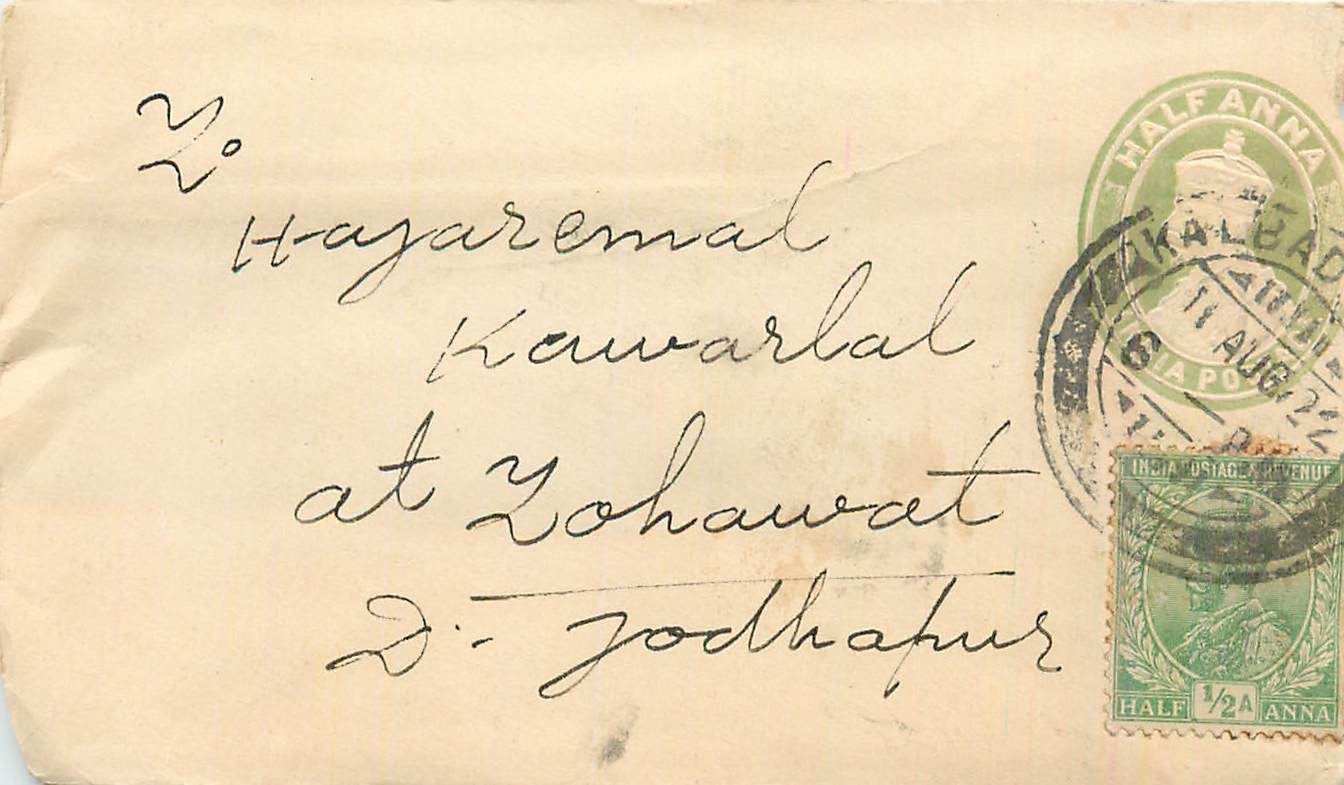 To
Hajaremal
Kawarlal
at Lohawat
D.- Jodhapur
HALF ANNA
INDIA POSTAGE
KALBADEVI
11 AUG. 22
INDIA POSTAGE & REVENUE
HALF 1/2A ANNA